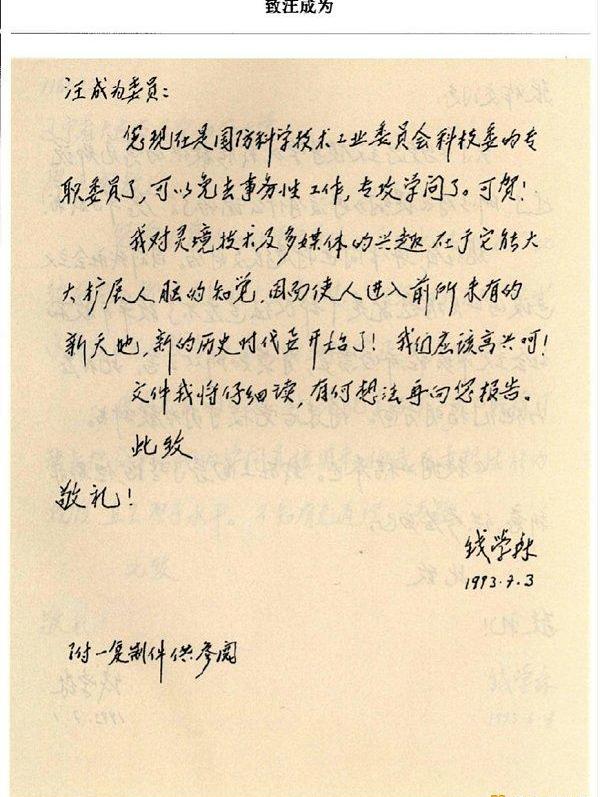 致汪成为
汪成为委员：
您现在是国防科学技术工业委员会科技委的专
职委员了，可以免去事务性工作，专攻学问了。可贺！
我对灵境技术及多媒体的兴趣在于它能大
大扩展人脑的知觉，因而使人进入前所未有的
新天地，新的历史时代要开始了！我们应该高兴呵！
文件我将仔细读，有何想法再向您报告。
此致
敬礼！
钱学森
1993.7.3
附一复制件供参阅